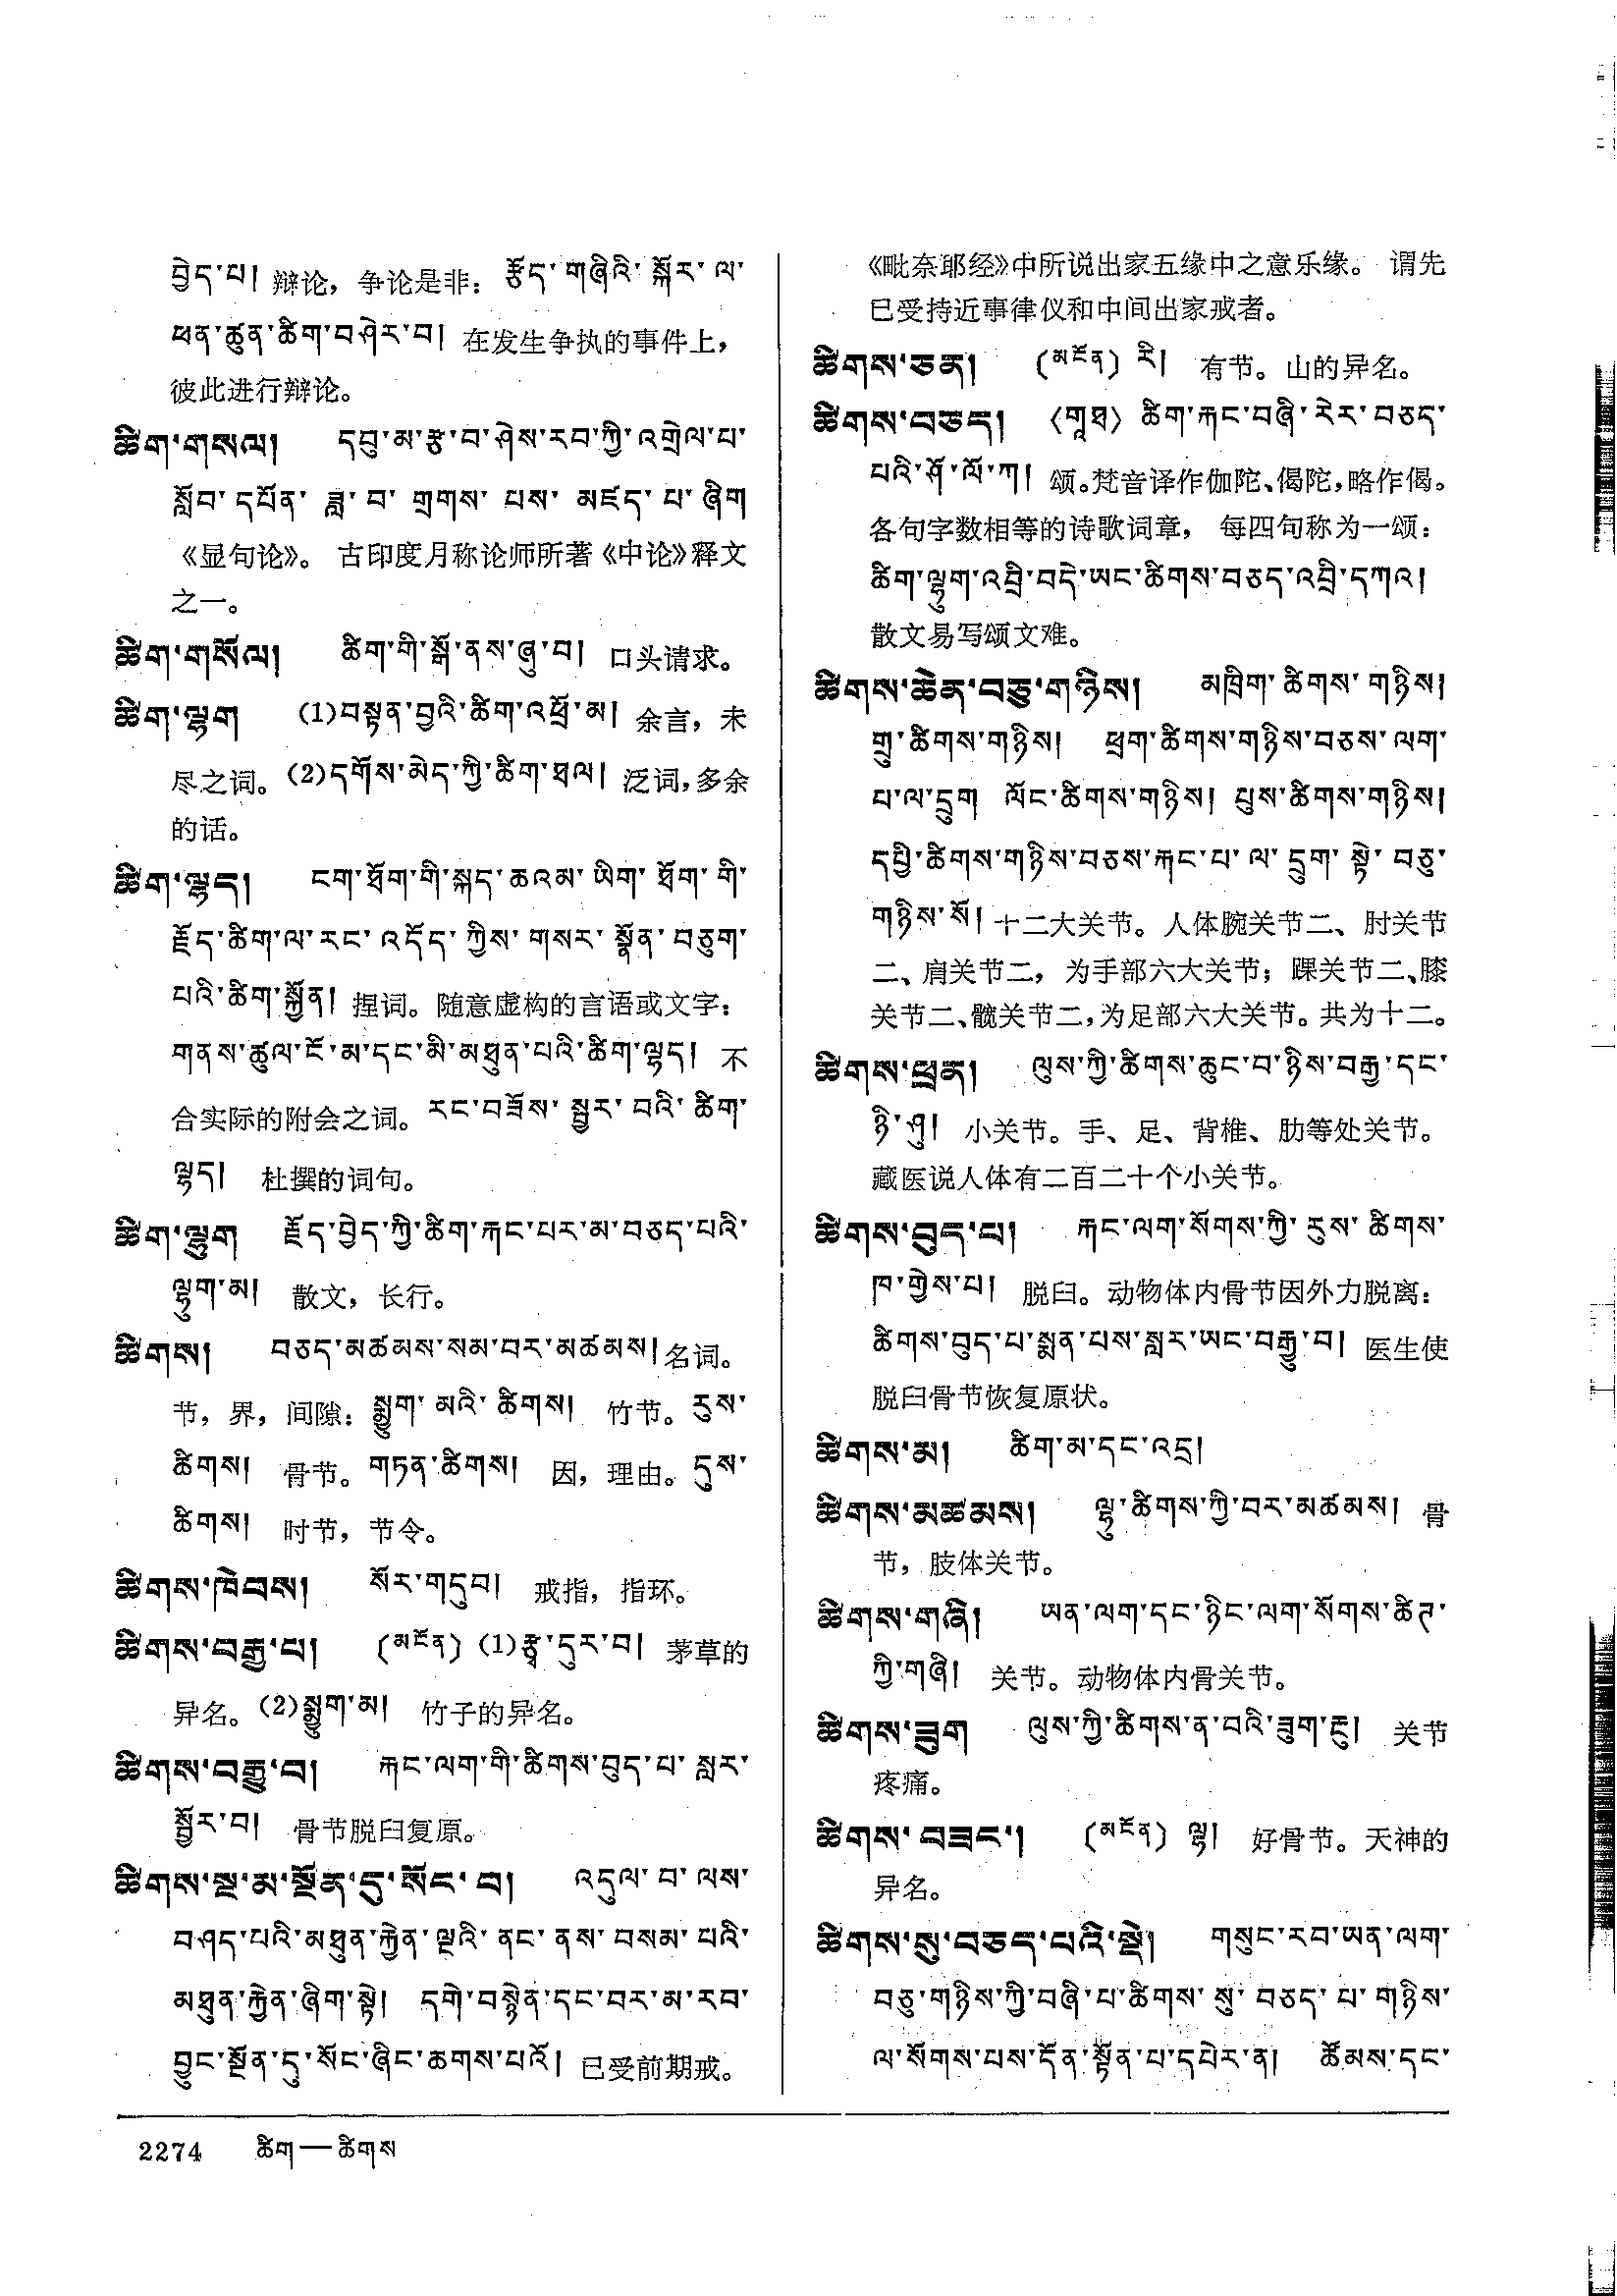 བྱེད་པ། 辩论，争论是非：རྩོད་གཞིའི་སྐོར་ལ་
ཕན་ཚུན་ཚིག་བཤེར་བ། 在发生争执的事件上，
彼此进行辩论。
ཚིག་གསལ། དབུ་མ་རྩ་བ་ཤེས་རབ་ཀྱི་འགྲེལ་པ་
སློབ་དཔོན་ཟླ་བ་གྲགས་པས་མཛད་པ་ཞིག
《显句论》。古印度月称论师所著《中论》释文
之一。
ཚིག་གསོལ། ཚིག་གི་སྒོ་ནས་ཞུ་བ། 口头请求。
ཚིག་ལྷག (1)བསྟན་བྱའི་ཚིག་འཕྲོ་མ། 余言，未
尽之词。(2)དགོས་མེད་ཀྱི་ཚིག་ཐལ། 泛词，多余
的话。
ཚིག་ལྷད། ངག་ཐོག་གི་སྐད་ཆའམ་ཡིག་ཐོག་གི་
རྗོད་ཚིག་ལ་རང་འདོད་ཀྱིས་གསར་སྣོན་བཅུག་
པའི་ཚིག་སྐྱོན། 捏词。随意虚构的言语或文字：
གནས་ཚུལ་ངོ་མ་དང་མི་མཐུན་པའི་ཚིག་ལྷད། 不
合实际的附会之词。རང་བཟོས་སྦྱར་བའི་ཚིག་
ལྷད། 杜撰的词句。
ཚིག་ལྷུག རྗོད་བྱེད་ཀྱི་ཚིག་རྐང་པར་མ་བཅད་པའི་
ལྷུག་མ། 散文，长行。
ཚིགས། བཅད་མཚམས་སམ་བར་མཚམས། 名词。
节，界，间隙：སྨྱུག་མའི་ཚིགས། 竹节。རུས་
ཚིགས། 骨节。གཏན་ཚིགས། 因，理由。དུས་
ཚིགས། 时节，节令。
ཚིགས་ཁེབས། སོར་གདུབ། 戒指，指环。
ཚིགས་བརྒྱ་པ། (མངོན) (1)རྩྭ་དུར་བ། 茅草的
异名。(2)སྨྱུག་མ། 竹子的异名。
ཚིགས་བརྒྱུ་བ། རྐང་ལག་གི་ཚིགས་བུད་པ་སླར་
སྦྱོར་བ། 骨节脱臼复原。
ཚིགས་སྔ་མ་སྔོན་དུ་སོང་བ། འདུལ་བ་ལས་
བཤད་པའི་མཐུན་རྐྱེན་ལྔའི་ནང་ནས་བསམ་པའི་
མཐུན་རྐྱེན་ཞིག་སྟེ། དགེ་བསྙེན་དང་བར་མ་རབ་
བྱུང་སྔོན་དུ་སོང་ཞིང་ཆགས་པའོ། 已受前期戒。
《毗奈耶经》中所说出家五缘中之意乐缘。谓先
已受持近事律仪和中间出家戒者。
ཚིགས་ཅན། (མངོན) རི། 有节。山的异名。
ཚིགས་བཅད། 〈གཱུཐ〉 ཚིག་རྐང་བཞི་རེར་བཅད་
པའི་ཤོ་ལོ་ཀ། 颂。梵音译作伽陀、偈陀，略作偈。
各句字数相等的诗歌词章，每四句称为一颂：
ཚིག་ལྷུག་འབྲི་བདེ་ཡང་ཚིགས་བཅད་འབྲི་དཀའ།
散文易写颂文难。
ཚིགས་ཆེན་བཅུ་གཉིས། མཁྲིག་ཚིགས་གཉིས།
གྲུ་ཚིགས་གཉིས། ཕྲག་ཚིགས་གཉིས་བཅས་ལག་
པ་ལ་དྲུག ལོང་ཚིགས་གཉིས། པུས་ཚིགས་གཉིས།
དཔྱི་ཚིགས་གཉིས་བཅས་རྐང་པ་ལ་དྲུག་སྟེ་བཅུ་
གཉིས་སོ། 十二大关节。人体腕关节二、肘关节
二、肩关节二，为手部六大关节；踝关节二、膝
关节二、髋关节二，为足部六大关节。共为十二。
ཚིགས་ཕྲན། ལུས་ཀྱི་ཚིགས་ཆུང་བ་ཉིས་བརྒྱ་དང་
ཉི་ཤུ། 小关节。手、足、背椎、肋等处关节。
藏医说人体有二百二十个小关节。
ཚིགས་བུད་པ། རྐང་ལག་སོགས་ཀྱི་རུས་ཚིགས་
ཁ་གྱེས་པ། 脱臼。动物体内骨节因外力脱离：
ཚིགས་བུད་པ་སྨན་པས་སླར་ཡང་བརྒྱུ་བ། 医生使
脱臼骨节恢复原状。
ཚིགས་མ། ཚིག་མ་དང་འདྲ།
ཚིགས་མཚམས། ལྷུ་ཚིགས་ཀྱི་བར་མཚམས། 骨
节，肢体关节。
ཚིགས་གཞི། ཡན་ལག་དང་ཉིང་ལག་སོགས་ཚིཊ་
ཀྱི་གཞི། 关节。动物体内骨关节。
ཚིགས་ཟུག ལུས་ཀྱི་ཚིགས་ན་བའི་ཟུག་རྔུ། 关节
疼痛。
ཚིགས་བཟང་། (མངོན) ལྷ། 好骨节。天神的
异名。
ཚིགས་སུ་བཅད་པའི་སྡེ། གསུང་རབ་ཡན་ལག་
བཅུ་གཉིས་ཀྱི་བཞི་པ་ཚིགས་སུ་བཅད་པ་གཉིས་
ལ་སོགས་པས་དོན་སྟོན་པ་དཔེར་ན། ཚོམས་དང་
2274 ཚིག—ཚིགས